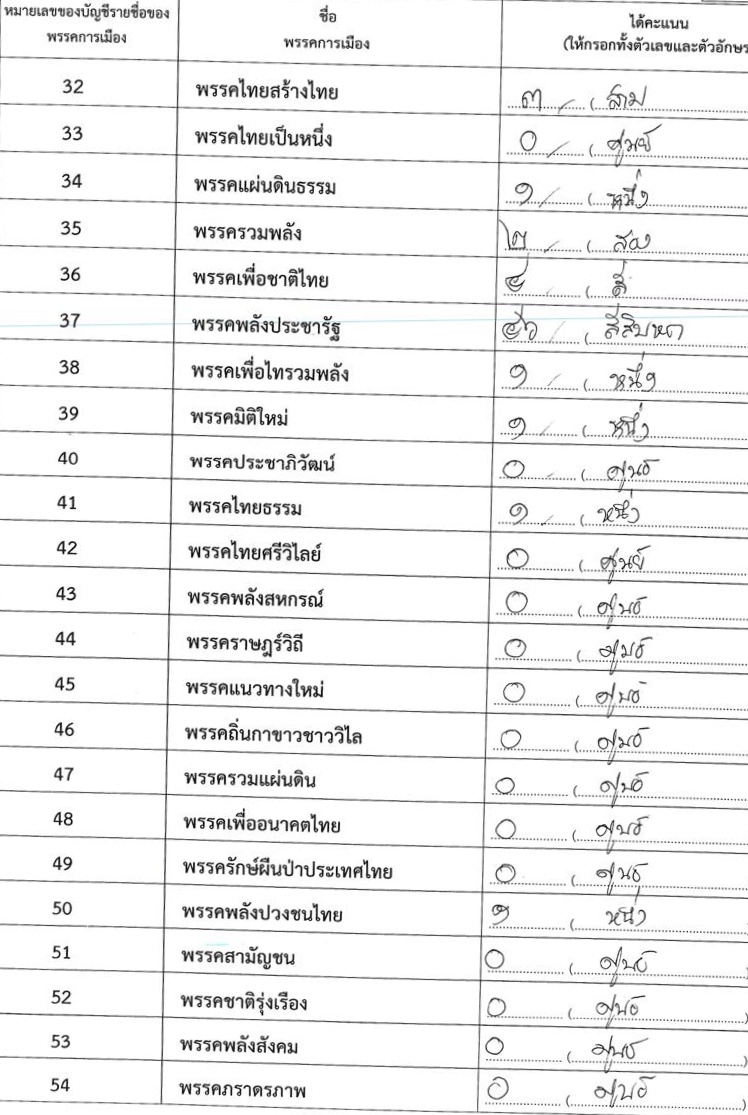 หมายเลขของบัญชีรายชื่อของ
พรรคการเมือง
ชื่อ
พรรคการเมือง
ได้คะแนน
(ให้กรอกทั้งตัวเลขและตัวอักษร
32 พรรคไทยสร้างไทย ๓ ( สาม
33 พรรคไทยเป็นหนึ่ง ๐ ( ศูนย์
34 พรรคแผ่นดินธรรม ๑ ( หนึ่ง
35 พรรครวมพลัง ๒ ( สอง
36 พรรคเพื่อชาติไทย ๔ ( สี่
37 พรรคพลังประชารัฐ ๔๖ ( สี่สิบหก
38 พรรคเพื่อไทรวมพลัง ๑ ( หนึ่ง
39 พรรคมิติใหม่ ๑ ( หนึ่ง
40 พรรคประชาภิวัฒน์ ๐ ( ศูนย์
41 พรรคไทยธรรม ๑ ( หนึ่ง
42 พรรคไทยศรีวิไลย์ ๐ ( ศูนย์
43 พรรคพลังสหกรณ์ ๐ ( ศูนย์
44 พรรคราษฎร์วิถี ๐ ( ศูนย์
45 พรรคแนวทางใหม่ ๐ ( ศูนย์
46 พรรคถิ่นกาขาวชาววิไล ๐ ( ศูนย์
47 พรรครวมแผ่นดิน ๐ ( ศูนย์
48 พรรคเพื่ออนาคตไทย ๐ ( ศูนย์
49 พรรครักษ์ผืนป่าประเทศไทย ๐ ( ศูนย์
50 พรรคพลังปวงชนไทย ๑ ( หนึ่ง
51 พรรคสามัญชน ๐ ( ศูนย์
52 พรรคชาติรุ่งเรือง ๐ ( ศูนย์ )
53 พรรคพลังสังคม ๐ ( ศูนย์ )
54 พรรคภราดรภาพ ๐ ( ศูนย์ )